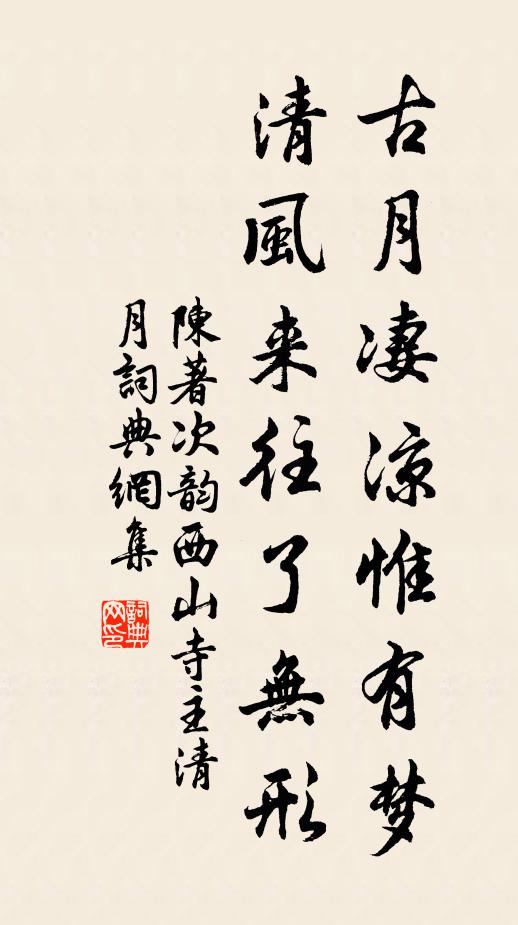 古月凄涼惟有梦
清風来往了無形
陳著次韵西山寺主清
月詞典網集
詞典网印